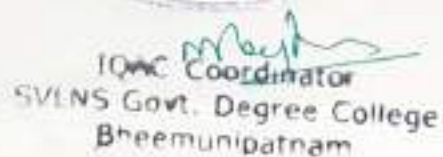 IQAC Coordinator
SVLNS Govt. Degree College
Bheemunipatnam